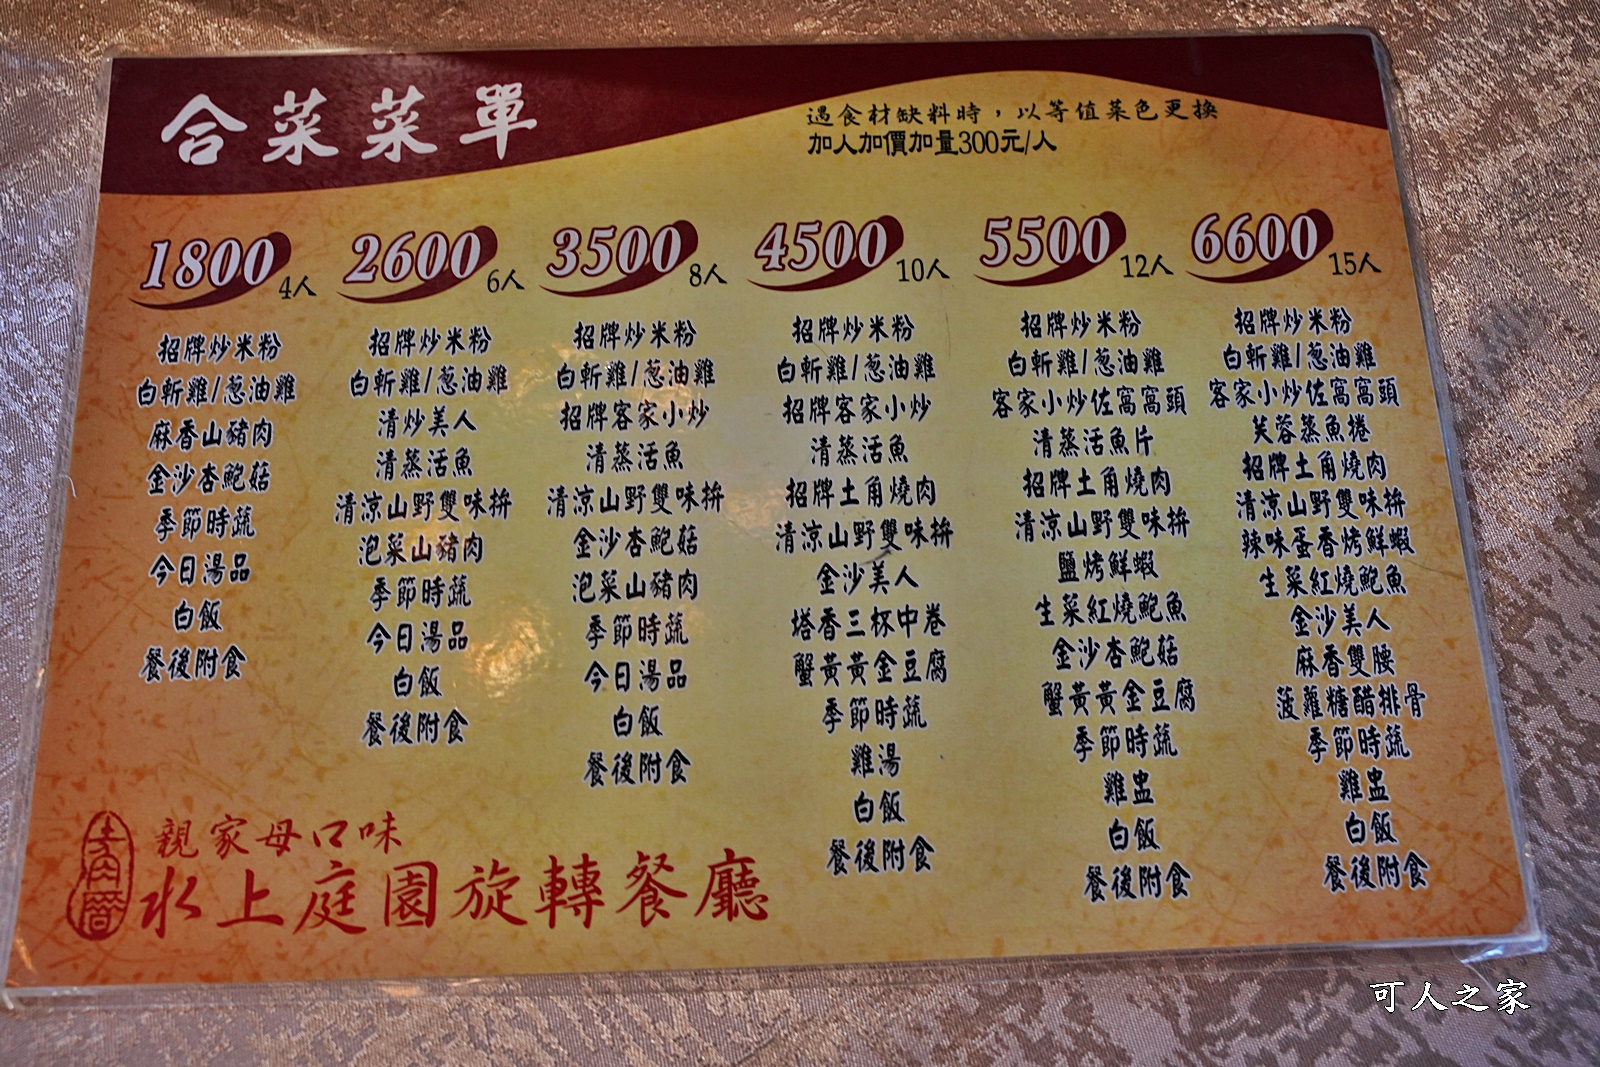 合菜菜單
遇食材缺料時，以等值菜色更換
加人加價加量300元/人
1800 4人
招牌炒米粉
白斬雞/蔥油雞
麻香山豬肉
金沙杏鮑菇
季節時蔬
今日湯品
白飯
餐後附食
2600 6人
招牌炒米粉
白斬雞/蔥油雞
清炒美人
清蒸活魚
清涼山野雙味拚
泡菜山豬肉
季節時蔬
今日湯品
白飯
餐後附食
3500 8人
招牌炒米粉
白斬雞/蔥油雞
招牌客家小炒
清蒸活魚
清涼山野雙味拚
金沙杏鮑菇
泡菜山豬肉
季節時蔬
今日湯品
白飯
餐後附食
4500 10人
招牌炒米粉
白斬雞/蔥油雞
招牌客家小炒
清蒸活魚
招牌土角燒肉
清涼山野雙味拚
金沙美人
塔香三杯中卷
蟹黃黃金豆腐
季節時蔬
雞湯
白飯
餐後附食
5500 12人
招牌炒米粉
白斬雞/蔥油雞
客家小炒佐窩窩頭
清蒸活魚片
招牌土角燒肉
清涼山野雙味拚
鹽烤鮮蝦
生菜紅燒鮑魚
金沙杏鮑菇
蟹黃黃金豆腐
季節時蔬
雞盅
白飯
餐後附食
6600 15人
招牌炒米粉
白斬雞/蔥油雞
客家小炒佐窩窩頭
芙蓉蒸魚捲
招牌土角燒肉
清涼山野雙味拚
辣味蛋香烤鮮蝦
生菜紅燒鮑魚
金沙美人
麻香雙腰
菠蘿糖醋排骨
季節時蔬
雞盅
白飯
餐後附食
親家母口味
水上庭園旋轉餐廳
可人之家